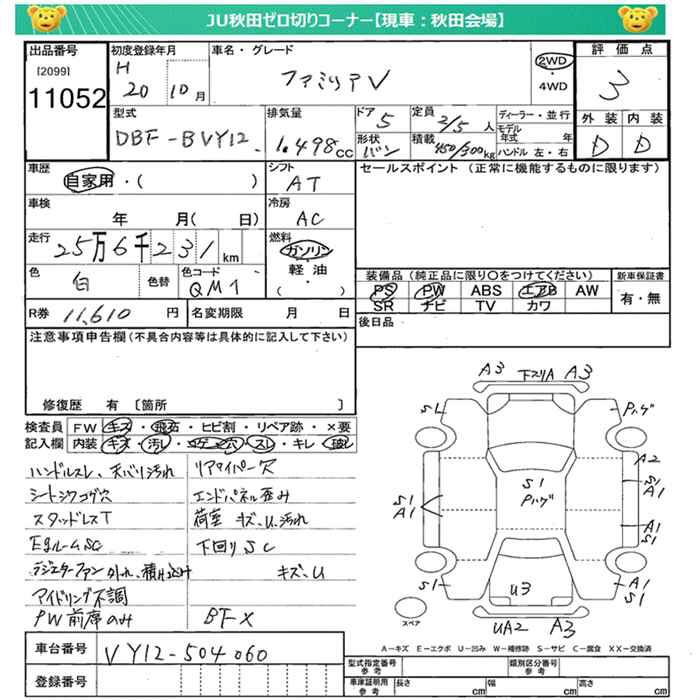 JU秋田ゼロ切りコーナー【現車：秋田会場】
出品番号
[2099]
11052
初度登録年月
H
20 10月
車名・グレード
ファミリアV
2WD
・
4WD
評価点
3
外装 内装
D D
型式
DBF-BVY12
排気量
1.498cc
ドア
5
形状
バン
定員
2/5人
積載
450/300kg
ディーラー・並行
モデル年式 年
ハンドル 左・右
車歴
自家用・( )
シフト
AT
セールスポイント（正常に機能するものに限ります）
車検
年 月( 日)
冷房
AC
走行
25万6千231km
燃料
ガソリン
・
軽油・
( )
色
白
色替
色コード
QM1
装備品（純正品に限り○をつけてください）
PS PW ABS エアB AW
SR ナビ TV カワ
新車保証書
有・無
R券 11,610円
名変期限 月 日
後日品
注意事項申告欄（不具合内容等は具体的に記入して下さい）
修復歴 有 〔箇所 〕
検査員記入欄
FW キズ・飛石・ヒビ割・リペア跡・×要
内装 キズ・汚レ・コゲ・穴・スレ・キレ・破レ
ハンドルスレ、天バリ汚れ
シートシワコゲ穴
スタッドレスT
Egルーム SC
ラジエターファン外れ、積み込み
アイドリング不調
PW前席のみ
リアワイパー欠
エンドパネル歪み
荷室 キズ、U、汚れ
下回りSC
キズ、U
BF×
A3 下スリA A3
SL Pハゲ
A2
S1
A1
S1
Pハゲ
S1
A1
A1
S1
S1
A1
S1
U3
スペア
UA2 A3
A－キズ E－エクボ U－凹み W－補修跡 S－サビ C－腐食 XX－交換済
車台番号
VY12-504060
登録番号
型式指定番号 参考
類別区分番号 参考
車庫証明用 参考
長さ cm
幅 cm
高さ cm